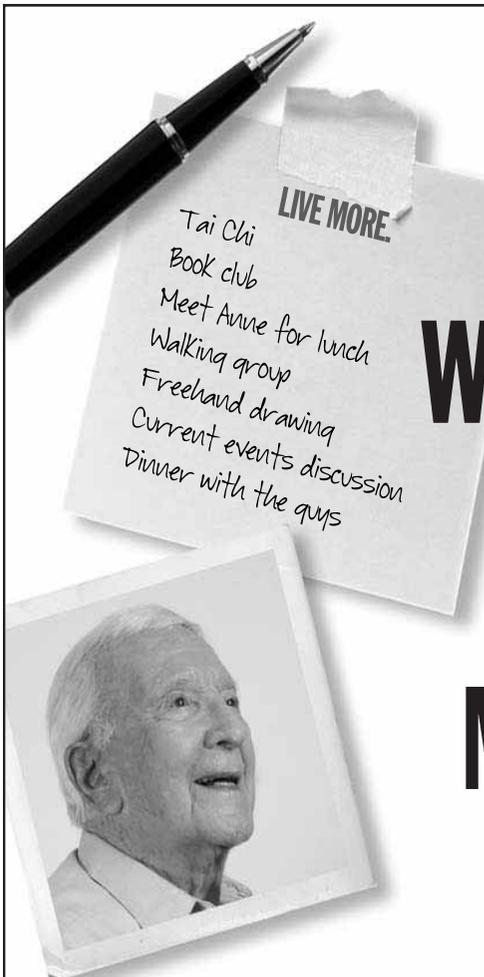 LIVE MORE.
Tai Chi
Book club
Meet Anne for lunch
Walking group
Freehand drawing
Current events discussion
Dinner with the guys
W
M